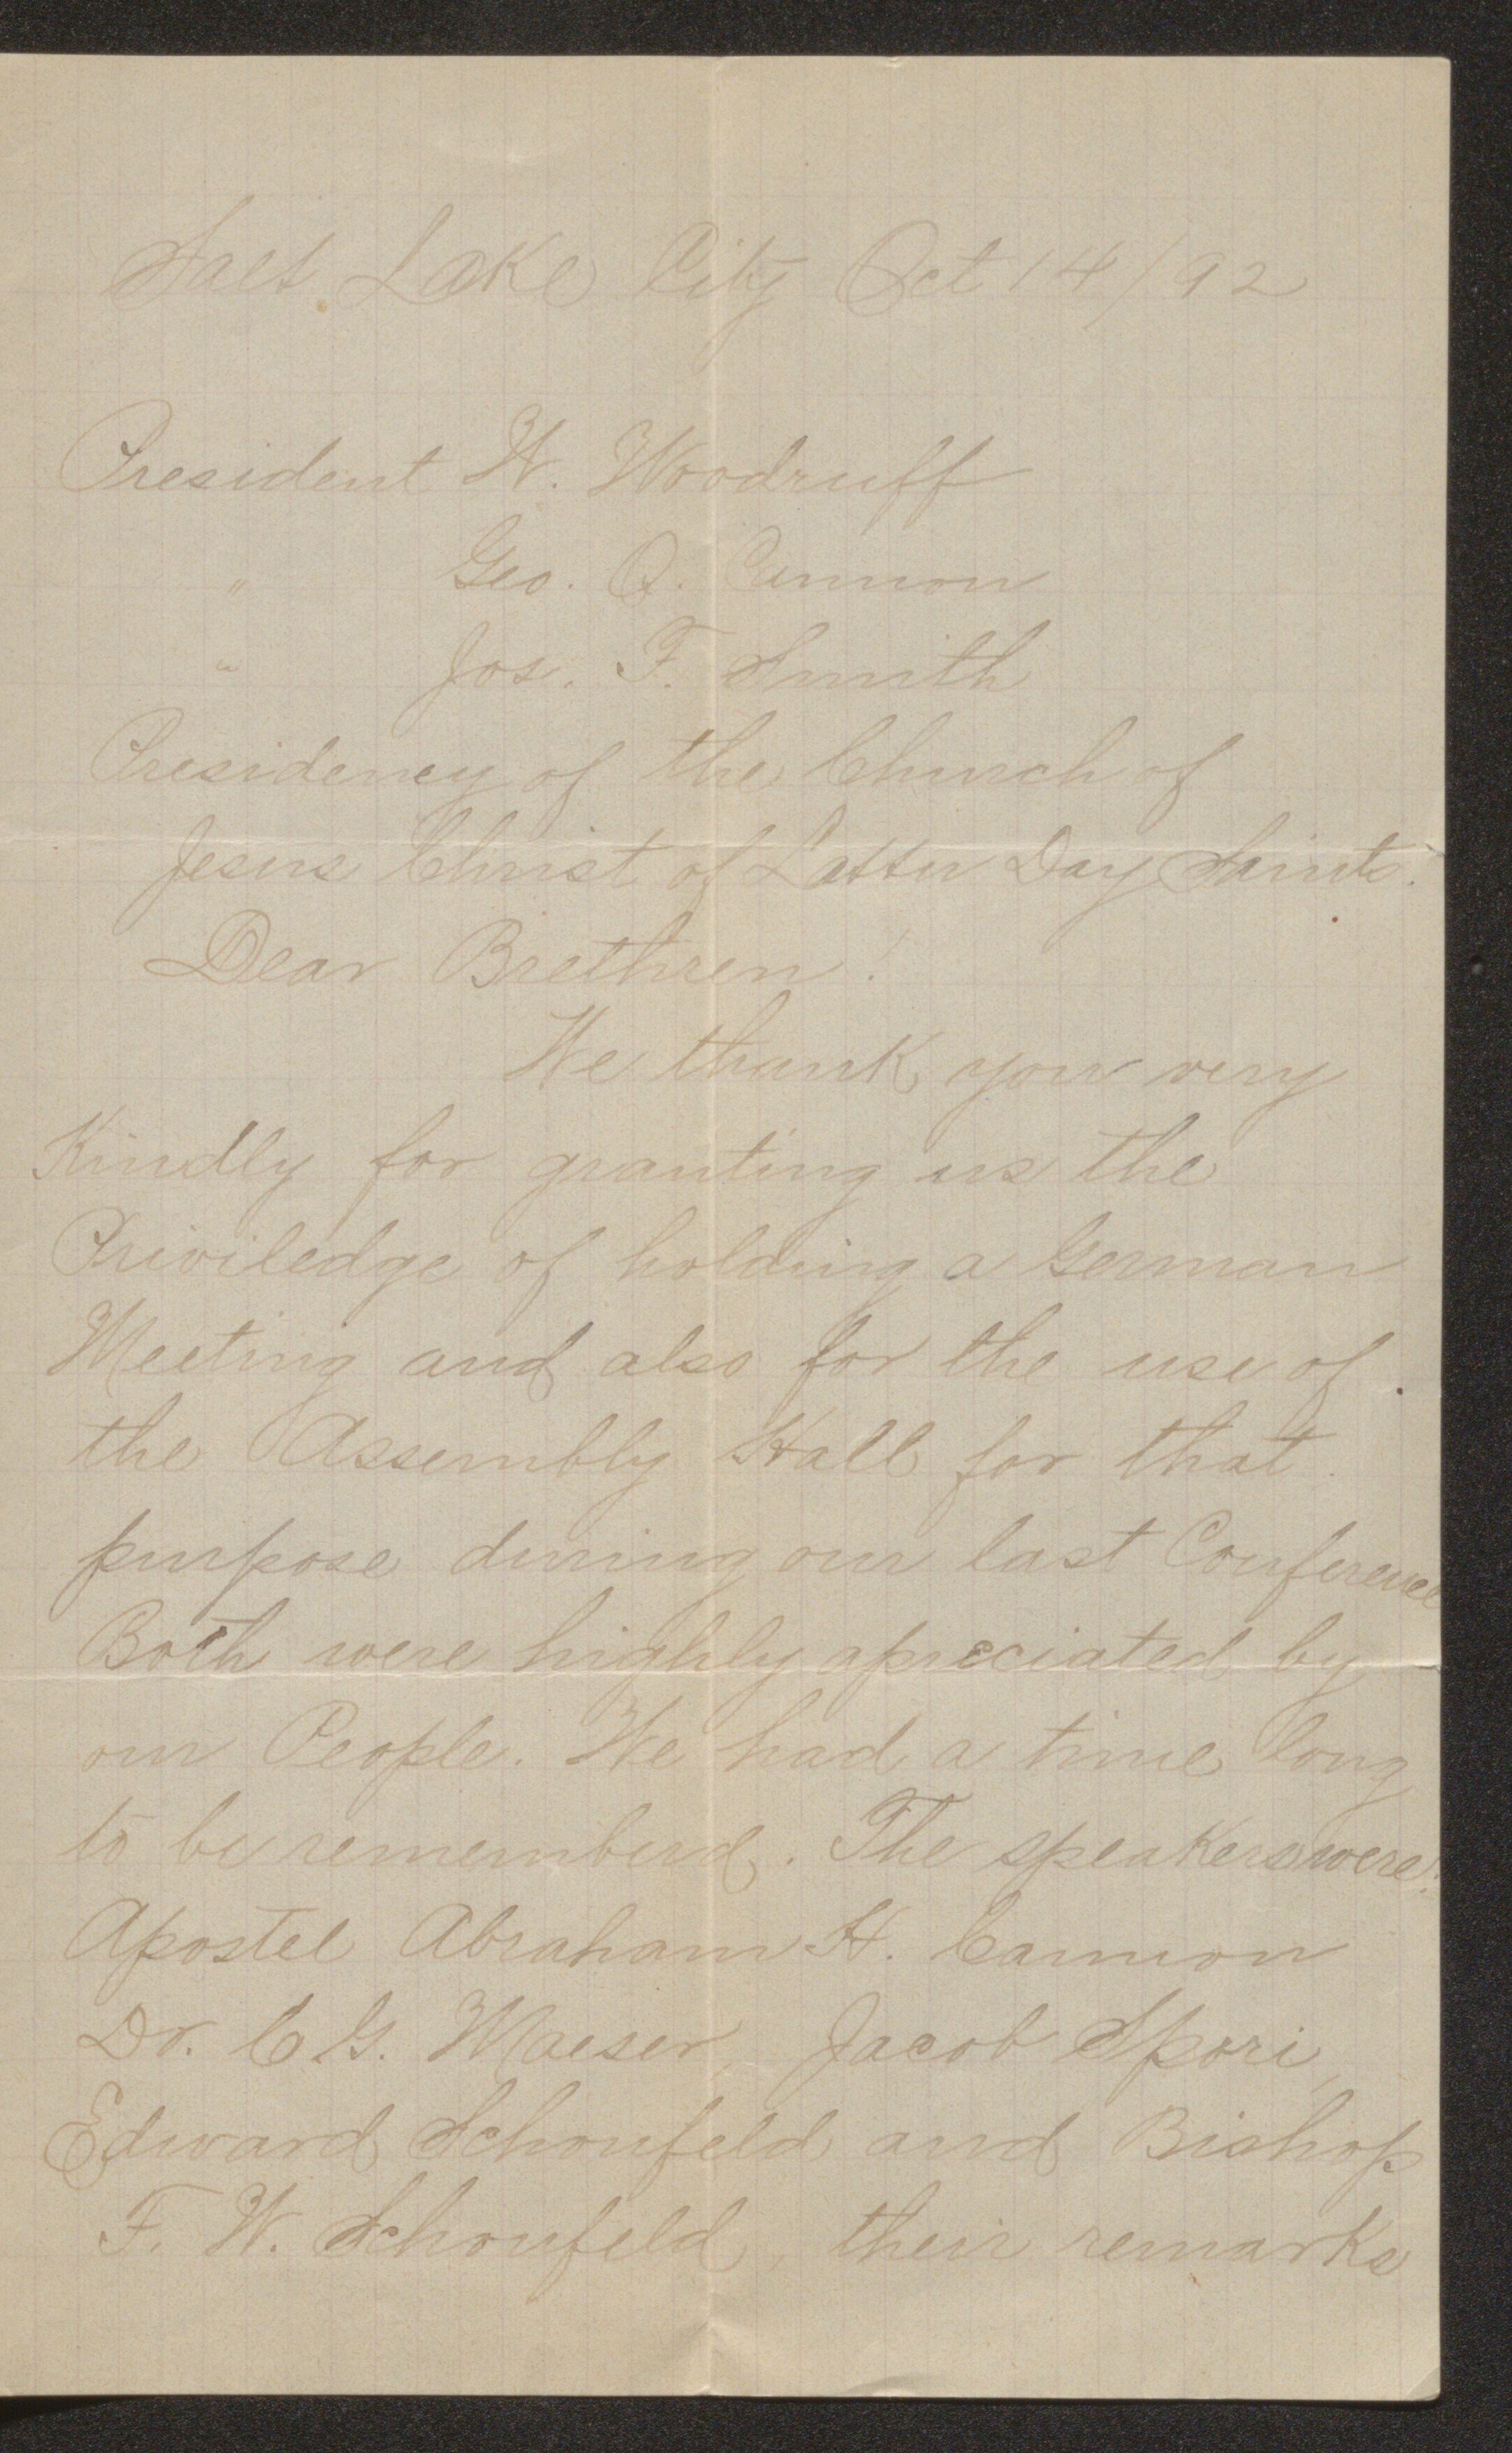 Salt Lake City Oct 14/92
President W. Woodruff
" Geo. Q. Cannon
" Jos. F. Smith
Presidency of the Church of
Jesus Christ of Latter Day Saints.
Dear Brethren!
We thank you very
Kindly for granting us the
Priviledge of holding a German
Meeting and also for the use of
the Assembly Hall for that
purpose during our last Conference
Both were highly apreciated by
our People. We had a time long
to be rememberd. The speakers were:
Apostel Abraham H. Cannon
Dr. C. G. Maeser, Jacob Spori,
Edward Schoufeld and Bishop
F. W. Schoufeld, their remarks